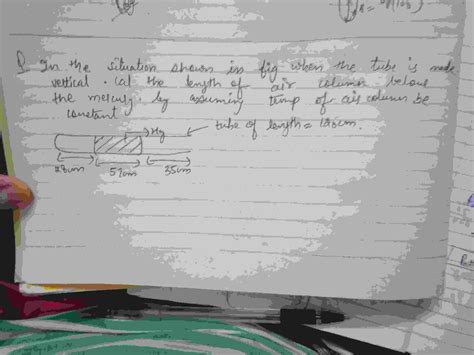 Q. In the situation shown in fig when the tube is made
vertical. Cal the length of air column below
the mercury by assuming temp of air column be
constant
Hg
tube of length =
28cm 57cm 35cm